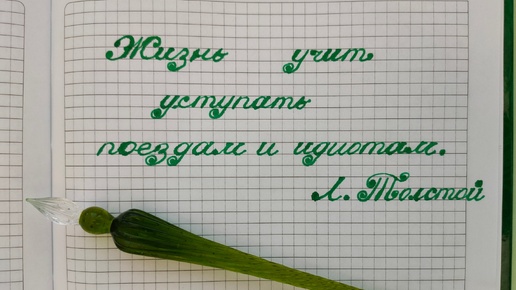 Жизнь учит
уступать
поездам и идиотам.
Л. Толстой